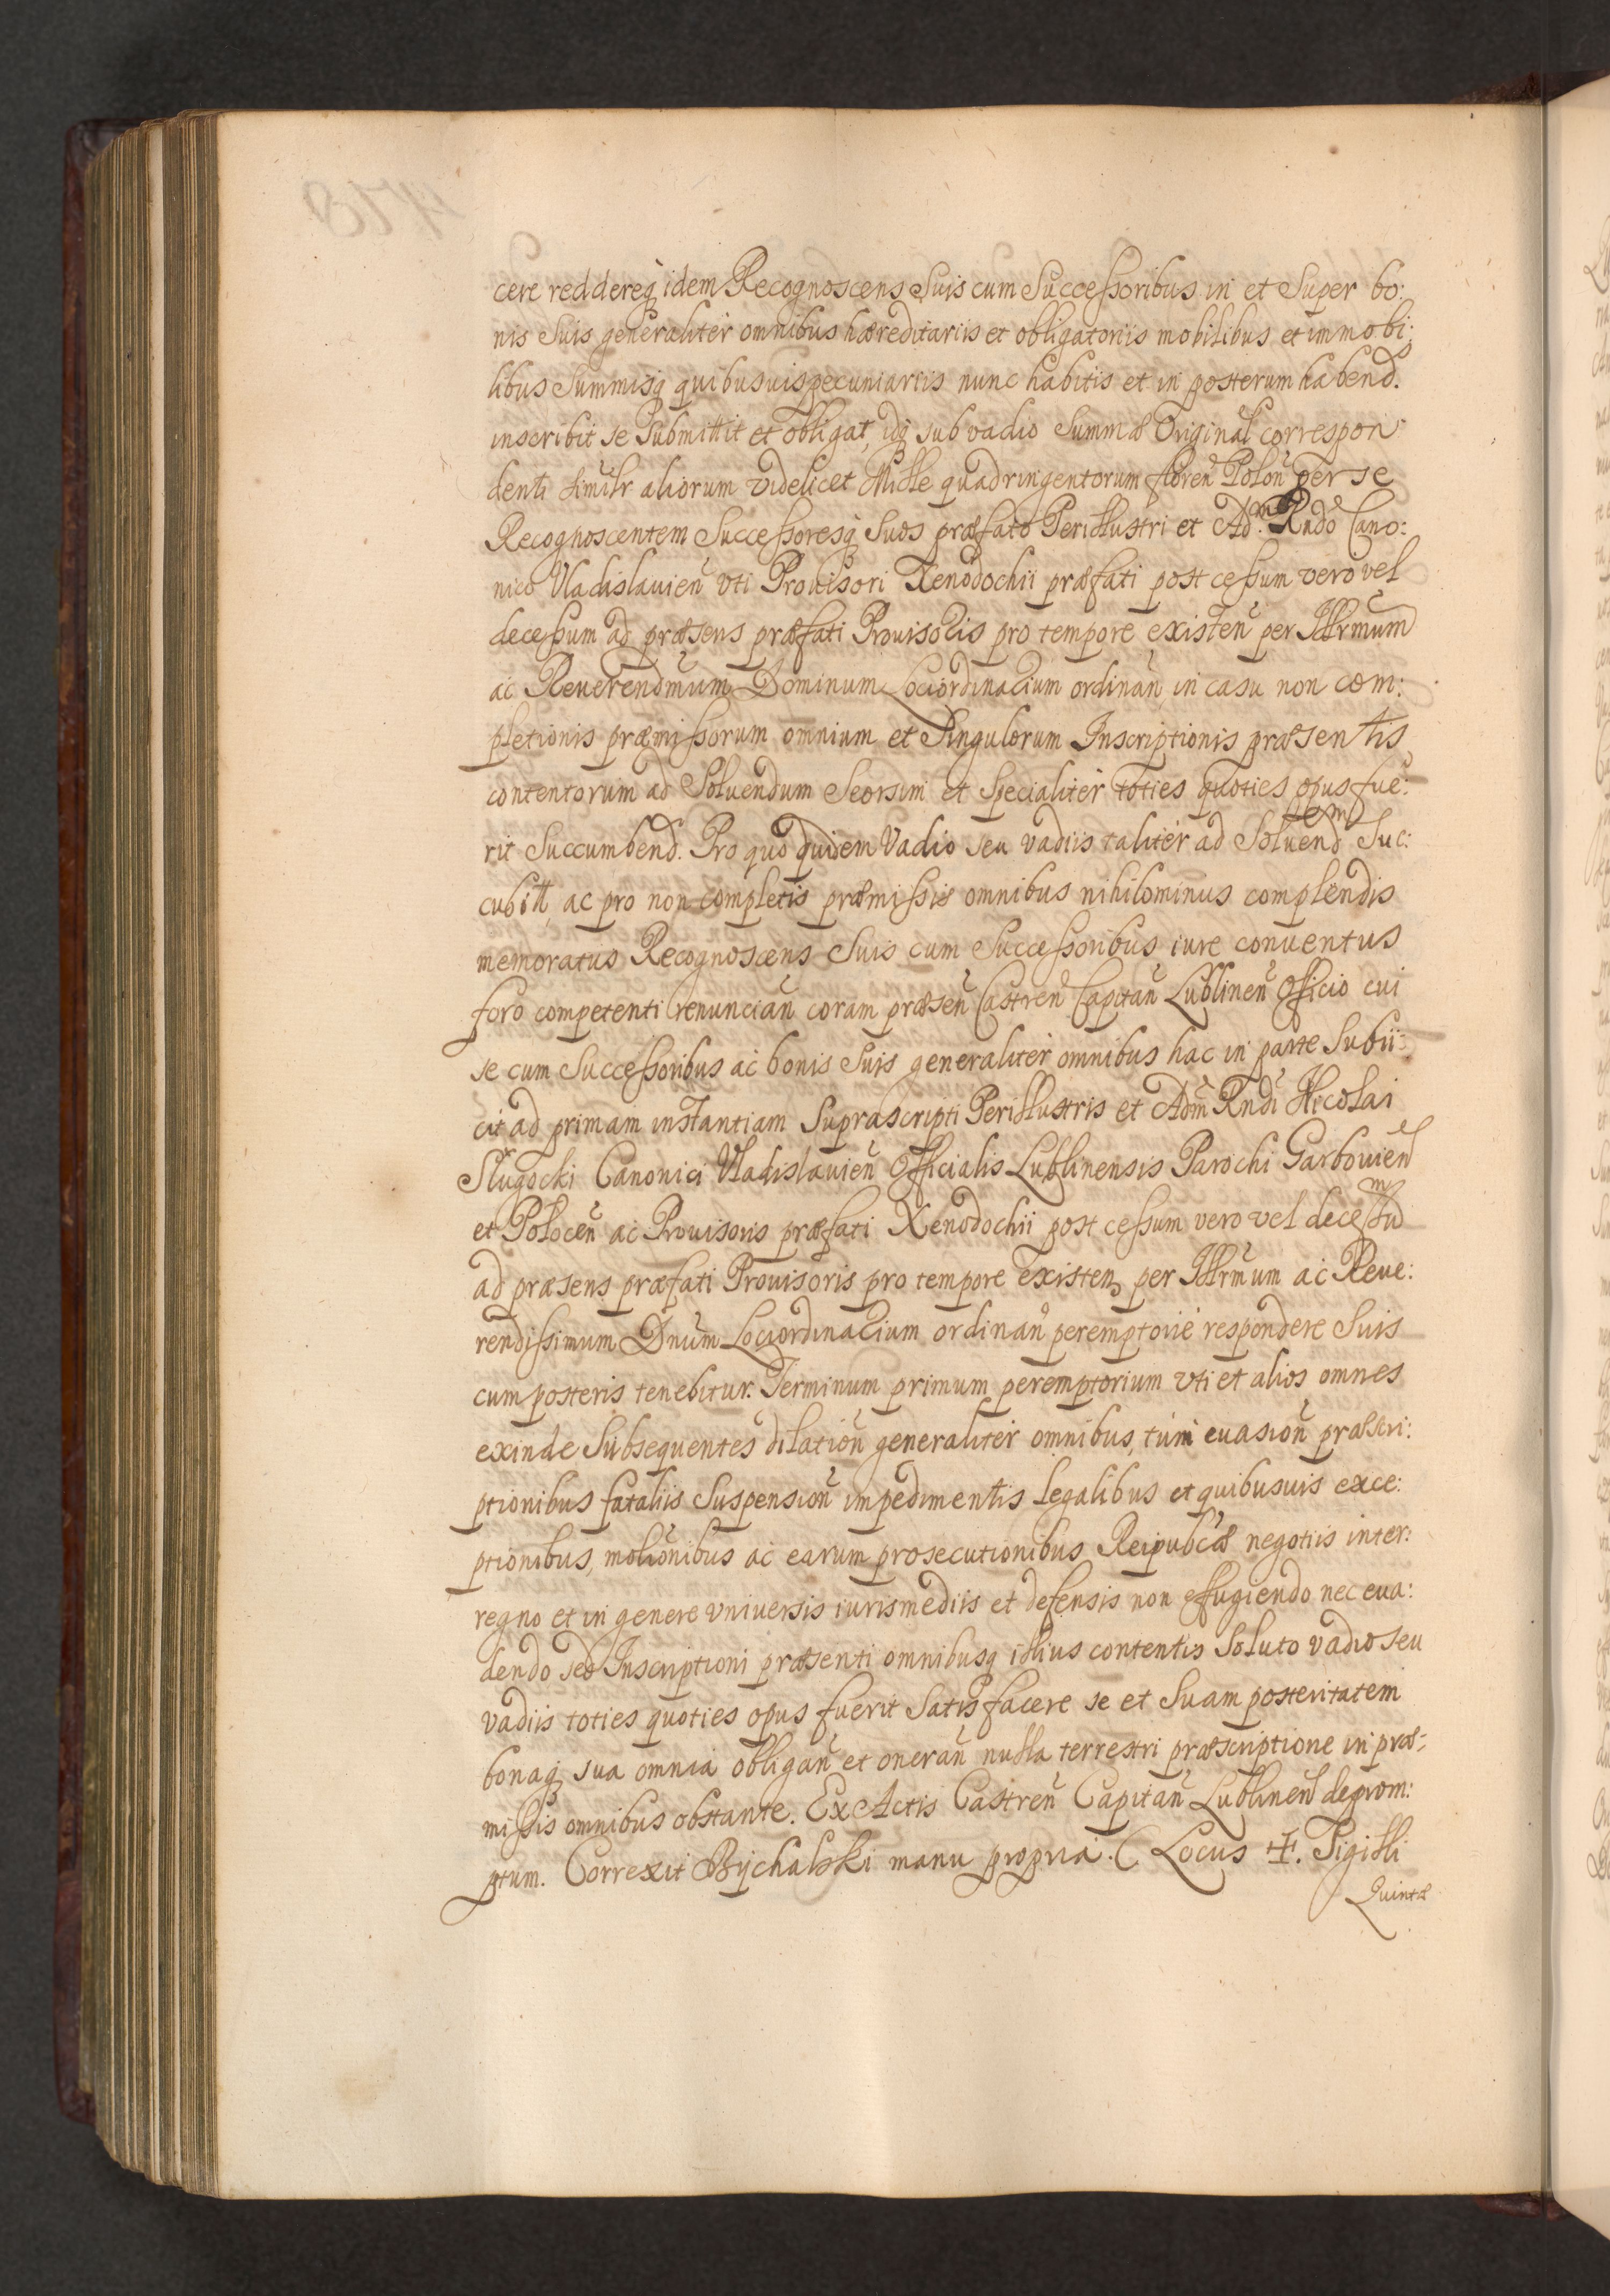 cere reddereq idem Recognoscens Suis cum Successoribus in et Super bo:
nis Suis generaliter omnibus hæreditariis et obligatoriis mobilibus et immobi:
libus Summisq quibusuis pecuniariis nunc habitis et in posterum habend.
inscribit se Submittit et obligat, idq sub vadio Summæ Original correspon
denti similr aliorum videlicet Mille quadringentorum floren̄ Polon̄ per se
Recognoscentem Successoresq Suos præfato Perillustri et Adm. Rndo Cano:
nico Vladislauien̄ vti Prouisori Xenodochii præfati post cessum vero vel
decessum ad præsens præfati Prouisoris pro tempore existen̄ per Illrmum
ac Reuerendmum Dominum Lociordinarium ordinan̄, in casu non com:
pletionis præmissorum omnium et Singulorum Inscriptionis præsentis
contentorum ad Soluendum Seorsim et Specialiter toties quoties opus fue:
rit Succumbend. Pro quo quidem Vadio seu vadiis taliter ad Soluendem Suc:
cubitt, ac pro non completis præmissis omnibus nihilominus complendis
memoratus Recognoscens Suis cum Successoribus iure conuentus
foro competenti renuncian̄ coram præsen̄ Castren̄ Capitan̄ Lublinen̄ Officio cui
se cum Successoribus ac bonis Suis generaliter omnibus hac in parte Subii:
cit ad primam instantiam Suprascripti Perillustris et Adm̄ Rndi Nicolai
Sługocki Canonici Vladislauien̄ Officialis Lublinensis Parochi Garbouien̄
et Polocen̄ ac Prouisoris præfati Xenodochii post cessum vero vel decessum
ad præsens præfati Prouisoris pro tempore Existen, per Illrmum ac Reue:
rendissimum Dnum Lociordinarium ordinan̄ peremptorie respondere Suis
cum posteris tenebitur. Terminum primum peremptorium vti et alios omnes
exinde Subsequentes dilation̄ generaliter omnibus, tum euasion̄ præscri:
ptionibus fataliis Suspension̄ impedimentis legalibus et quibusuis exce:
ptionibus, motionibus ac earum prosecutionibus Reipublcæ negotiis inter:
regno et in genere vniuersis iurismediis et defensis non effugiendo nec eua:
dendo sed Inscriptioni præsenti omnibusq illius contentis Soluto vadio seu
vadiis toties quoties opus fuerit Satisfacere se et Suam posteritatem
bonaq sua omnia obligan̄ et oneran̄ nulla terrestri præscriptione in præ:
missis omnibus obstante. Ex Actis Castren̄ Capitan̄ Lublinen̄ deprom:
ptum. Correxit Bychalski manu propria. ( Locus ✠. Sigilli
Quintæ